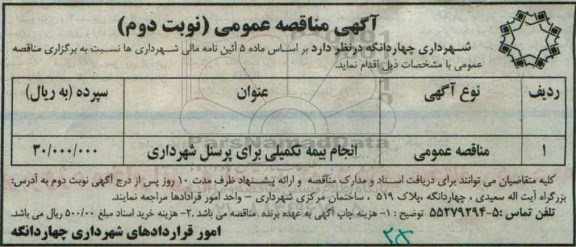 آگهی مناقصه عمومی (نوبت دوم)
شهرداری چهاردانگه درنظر دارد بر اساس ماده ۵ آئین نامه مالی شهرداری ها نسبت به برگزاری مناقصه
عمومی با مشخصات ذیل اقدام نماید.
ردیف نوع آگهی عنوان سپرده (به ریال)
۱ مناقصه عمومی انجام بیمه تکمیلی برای پرسنل شهرداری ۳۰/۰۰۰/۰۰۰
کلیه متقاضیان می توانند برای دریافت اسناد و مدارک مناقصه و ارائه پیشنهاد ظرف مدت ۱۰ روز پس از درج آگهی نوبت دوم به آدرس:
بزرگراه آیت اله سعیدی ، چهاردانگه ،پلاک ۵۱۹ ، ساختمان مرکزی شهرداری – واحد امور قرادادها مراجعه نمایند.
تلفن تماس :۵-۵۵۲۷۹۲۹۴ توضیح : ۱- هزینه چاپ آگهی به عهده برنده مناقصه می باشد .۲- هزینه خرید اسناد مبلغ ۵۰۰/۰۰۰ ریال می باشد.
امور قراردادهای شهرداری چهاردانگه
۲۵
ParsNamadData